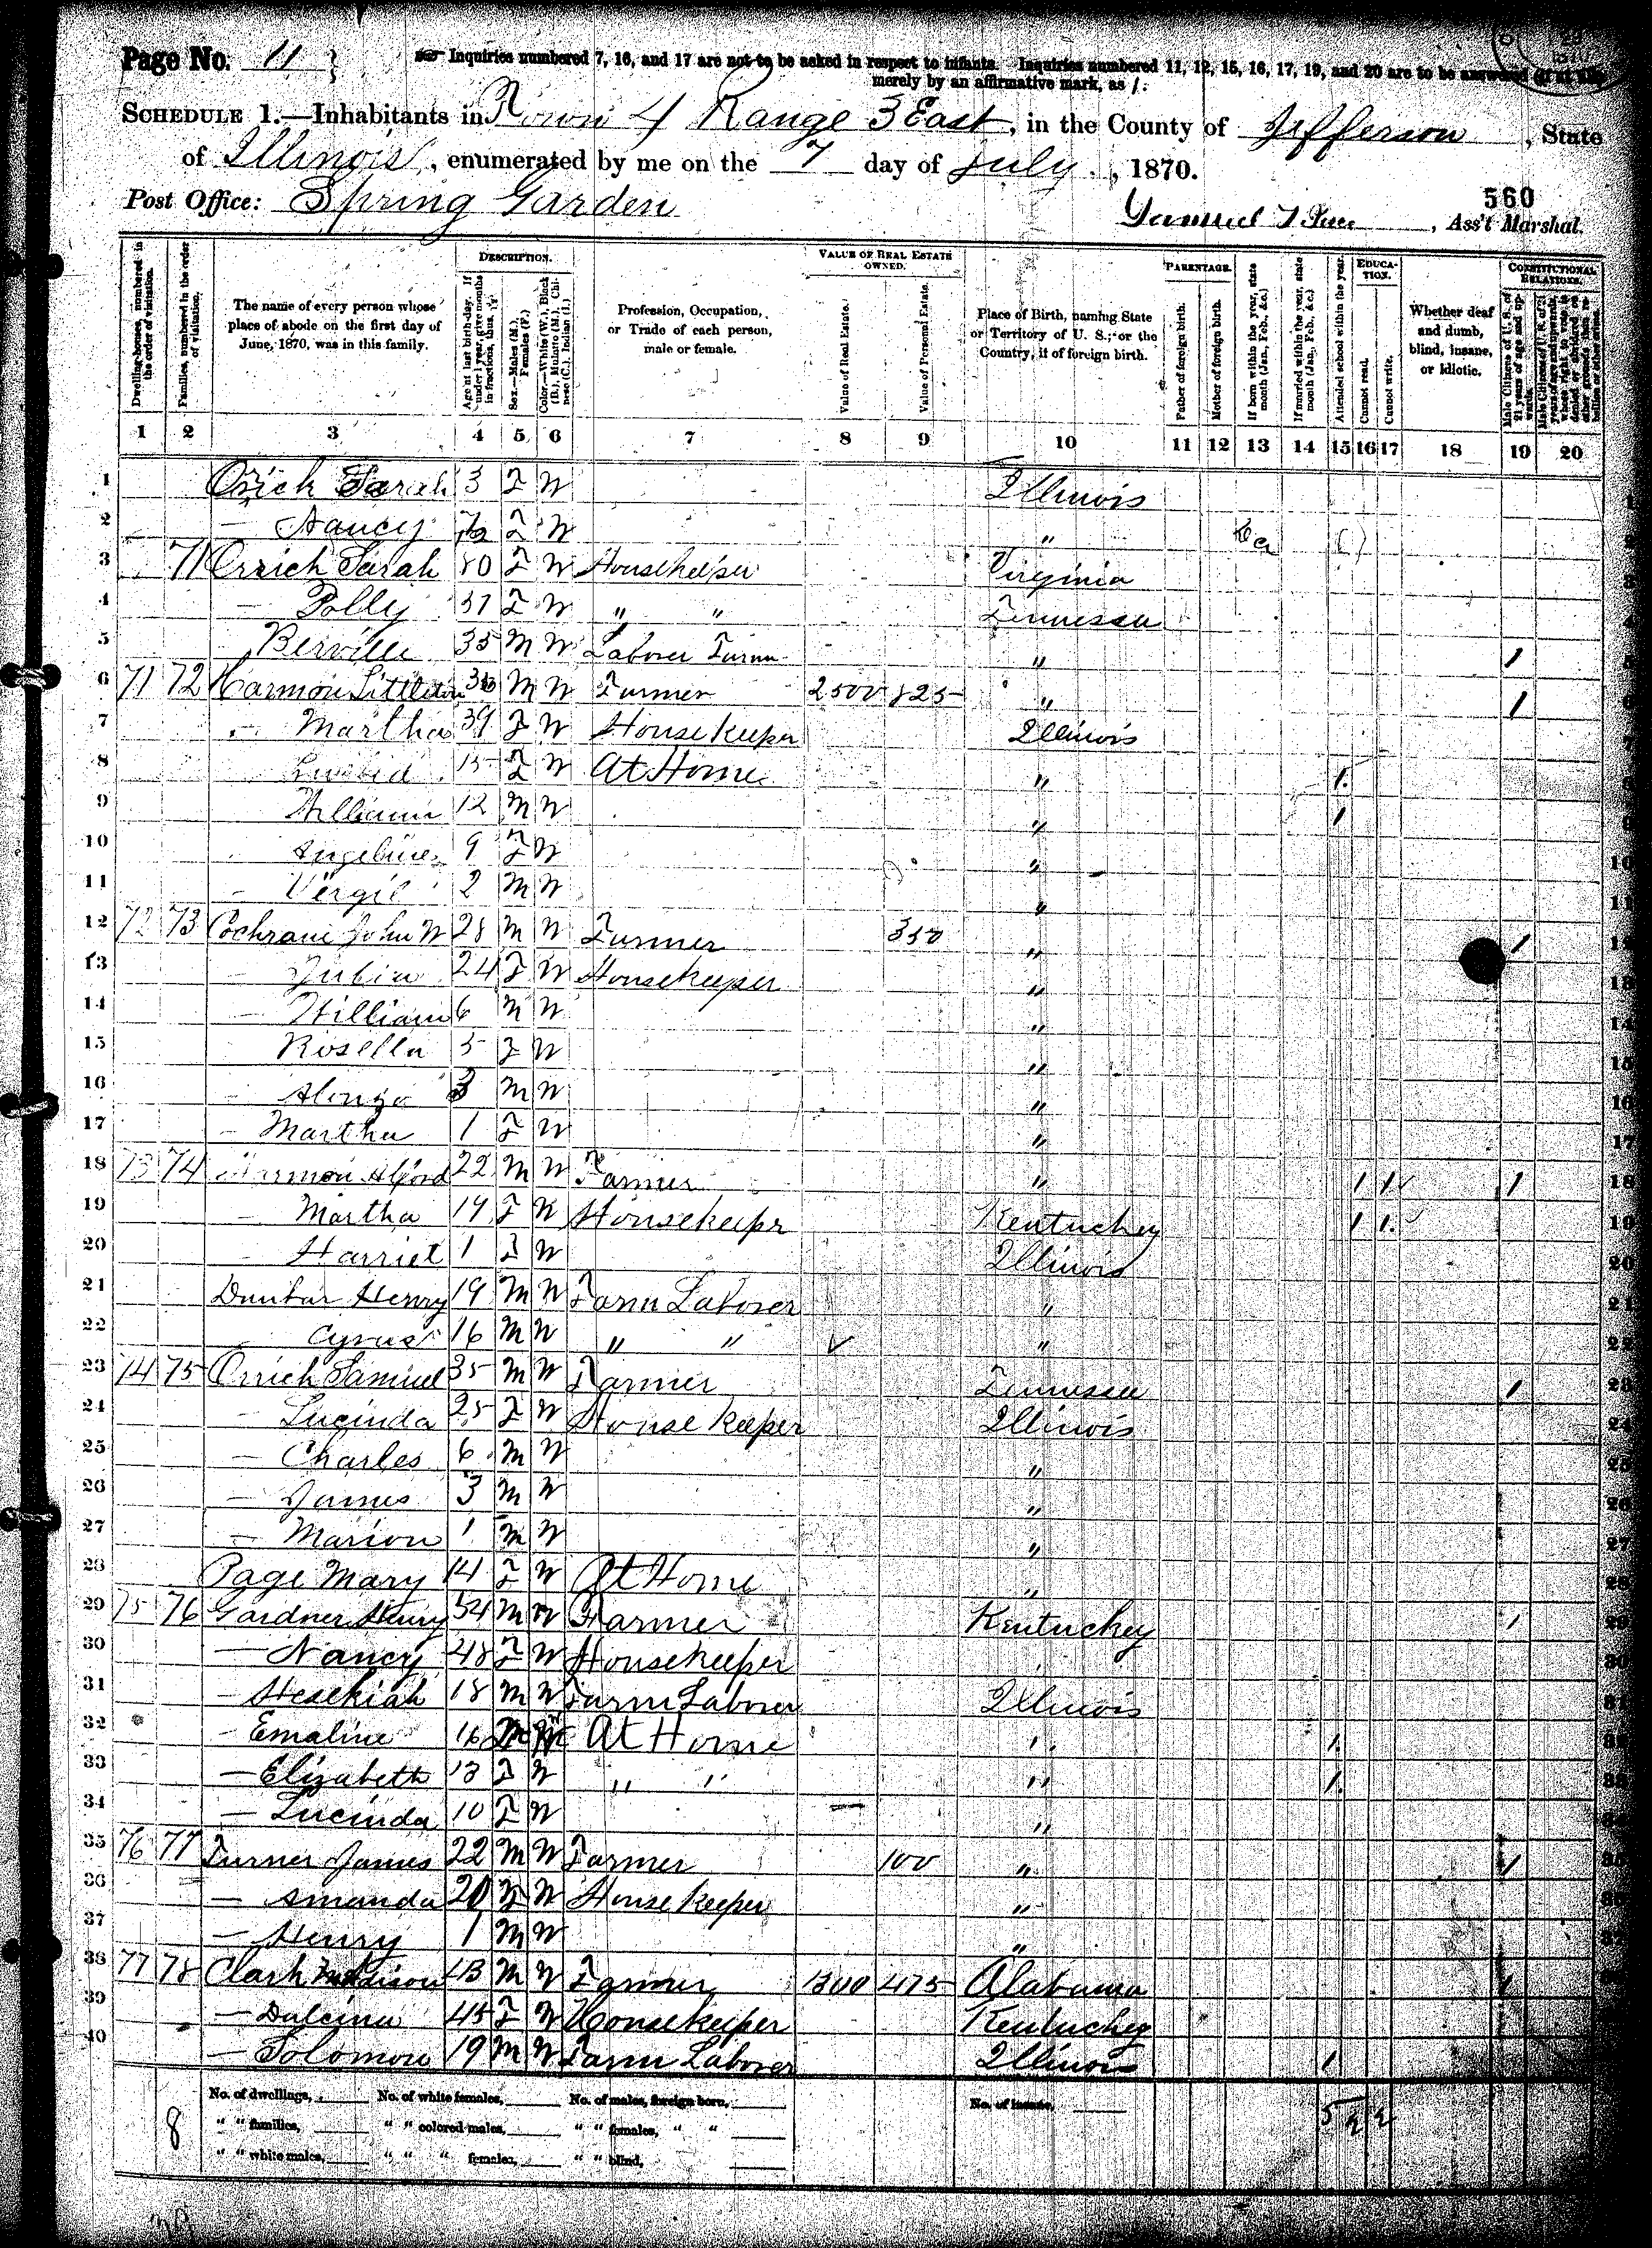 Page No. 11
Inquiries numbered 7, 16, and 17 are not to be asked in respect to infants. Inquiries numbered 11, 12, 15, 16, 17, 19, and 20 are to be answered (if at all)
merely by an affirmative mark, as /.
SCHEDULE 1.—Inhabitants in Town 4 Range 3 East, in the County of Jefferson, State
of Illinois, enumerated by me on the 7 day of July, 1870.
560
Post Office: Spring Garden Samuel T, Ass't Marshal.
DESCRIPTION. VALUE OF REAL ESTATE OWNED. PARENTAGE. EDUCATION. CONSTITUTIONAL RELATIONS.
Dwelling-houses, numbered in the order of visitation.
Families, numbered in the order of visitation.
The name of every person whose place of abode on the first day of June, 1870, was in this family.
Age at last birth-day. If under 1 year, give months in fractions, thus,
Sex.—Males (M.), Females (F.)
Color.—White (W.), Black (B.), Mulatto (M.), Chinese (C.), Indian (I.)
Profession, Occupation, or Trade of each person, male or female.
Value of Real Estate.
Value of Personal Estate.
Place of Birth, naming State or Territory of U. S.; or the Country, if of foreign birth.
Father of foreign birth.
Mother of foreign birth.
If born within the year, state month (Jan., Feb., &c.)
If married within the year, state month (Jan., Feb., &c.)
Attended school within the year.
Cannot read.
Cannot write.
Whether deaf and dumb, blind, insane, or idiotic.
Male Citizens of U. S. of 21 years of age and upwards.
1 2 3 4 5 6 7 8 9 10 11 12 13 14 15 16 17 18 19 20
1 Orrich Sarah 3 F W Illinois 1
2 — Nancy F W " 2
3 71 Orrich Sarah 80 F W Housekeeper Virginia 3
4 — Polly 37 F W " " Tennessee 4
5 Berville 35 M W Labover Farm " / 5
6 71 72 Harmon Littleton M W Farmer 2500 825 " / 6
7 — Martha 39 F W Housekeeper Illinois 7
8 15 F W At Home " / 8
9 William 12 M W " / 9
10 Angeline 9 F W " 10
11 — Vergil 2 M W " 11
12 72 73 Cochrane John W 28 M W Farmer 350 " / 12
13 — Julia 24 F W Housekeeper " 13
14 — William 6 M W " 14
15 Rosella 5 F W " 15
16 — Alonzo 3 M W " 16
17 — Martha 1 F W " 17
18 73 74 Harmon Alford 22 M W Farmer " / / / 18
19 — Martha 19 F W Housekeepr Kentuckey / / 19
20 — Harriet 1 F W Illinois 20
21 Dunbar Henry 19 M W Farm Labover " 21
22 Cyrus 16 M W " " " 22
23 74 75 Orrich Samuel 35 M W Farmer Tennessee / 23
24 — Lucinda 25 F W House Keeper Illinois 24
25 — Charles 6 M W " 25
26 — James 3 M W " 26
27 — Marion 1 M W " 27
28 Page Mary 14 F W At Home " 28
29 75 76 Gardner Henry 54 M W Farmer Kentuckey / 29
30 — Nancy 48 F W Housekeeper 30
31 — Hesekiah 18 M W Farm Labover Illinois 31
32 — Emaline 16 At Home " / 32
33 — Elizabeth 13 F W " " " / 33
34 — Lucinda 10 F W " 34
35 76 77 Turner James 22 M W Farmer 100 " / 35
36 — Amanda 20 F W House Keeper " 36
37 — Henry 1 M W " 37
38 77 78 Clark Maddison 43 M W Farmer 1300 475 Alabama / 38
39 — Dulcina 45 F W Housekeeper Kentuckey
40 — Solomon 19 M W Farm Labover Illinois /
No. of dwellings, No. of white females, No. of males, foreign born, No. of insane,
" " families, " " colored males, " " females, " "
" " white males, " " " females, " " blind,
8 5 2 2